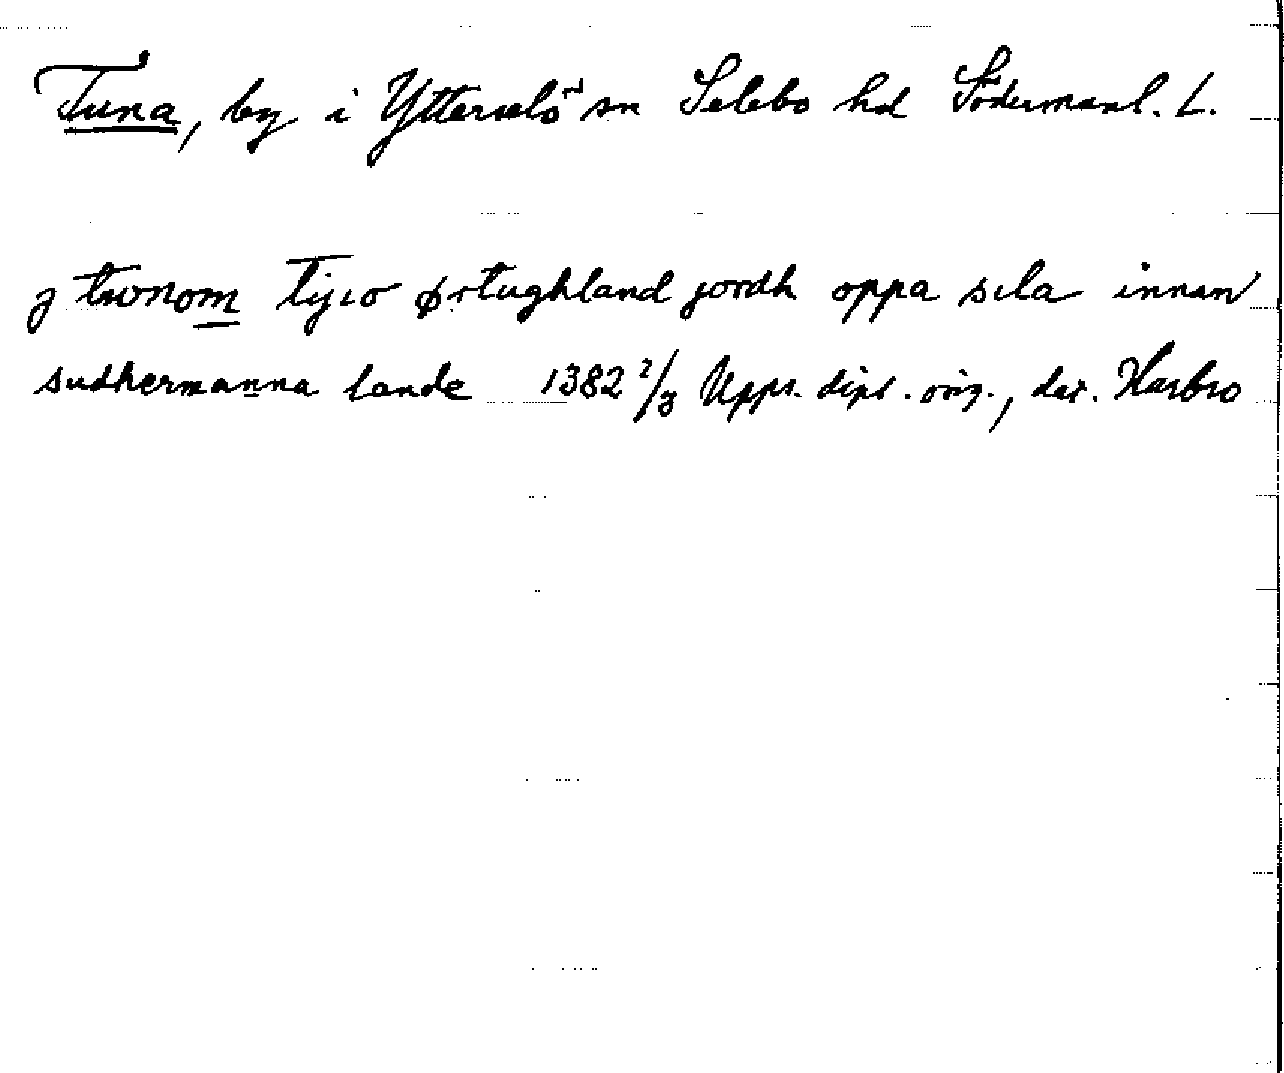 Tuna, by i Ytterselö sn Selebo hd Södermanl. L.
j twnom tijio ørtughland jordh oppa sila innan
sudhermanna lande 1382 2/3 Upps. dipl. orig., dat. Harbro